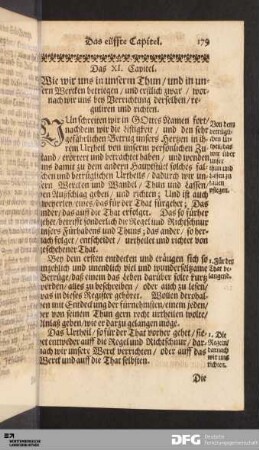 Das eilffte Capitel. 179
Das XI. Capitel.
Wie wir uns in unserm Thun / und in un-
sern Wercken betriegen / und erstlich zwar / wor-
nach wir uns bey Verrichtung derselben / re-
guliren und richten.
NUn schreiten wir in GOttes Namen fort /
nachdem wir die häßligkeit / und den sehr
gefährlichen Betrug unsers Hertzen in ih-
rem Urtheil von unserm persönlichen Zu-
stand / erörtert und betrachtet haben / und wenden
uns damit zu dem andern Hauptstück solches fal-
schen und betrüglichen Urtheils / dadurch wir un-
sern Wercken und Wandel / Thun und Lassen
den Ausschlag geben / und richten; Und ist auch
zweyerley / eines / das für der That fürgehet; Das
ander / das auff die That erfolget. Das so fürher
gehet / betrifft sonderlich die Regul und Richtschnur
unsers Fürhabens und Thuns; das ander / so her-
nach folget / entscheidet / urtheilet und richtet von
geschehener That.
Bey dem ersten entdecken und eräugen sich so
ungehlich und unendlich viel und wundersältzame
Betrüge / das einem das leben darüber solte kurz
werden / alles zu beschreiben / oder auch zu lesen /
was in dieses Register gehöret. Wollen derohal-
ben mit Entdeckung der fürnehmsten / einem jeden /
der von seinem Thun gern recht urtheilen wolte /
Anlaß geben / wie er darzu gelangen möge.
Das Urtheil / so für der That vorher gehet / sie-
het entweder auff die Regel und Richtschnur / dar-
nach wir unsere Werck verrichten / oder auff das
Werck und auff die That selbsten.
Die
Von dem
betrügli-
chen Ur-
theil, das
wir über
unser
thun und
lassen zu
fällen
pflegen.
1. Für der
That vor-
hergehend.
1. Die
Regeln /
darnach
wir uns
richten.
DFG Deutsche
Forschungsgemeinschaft